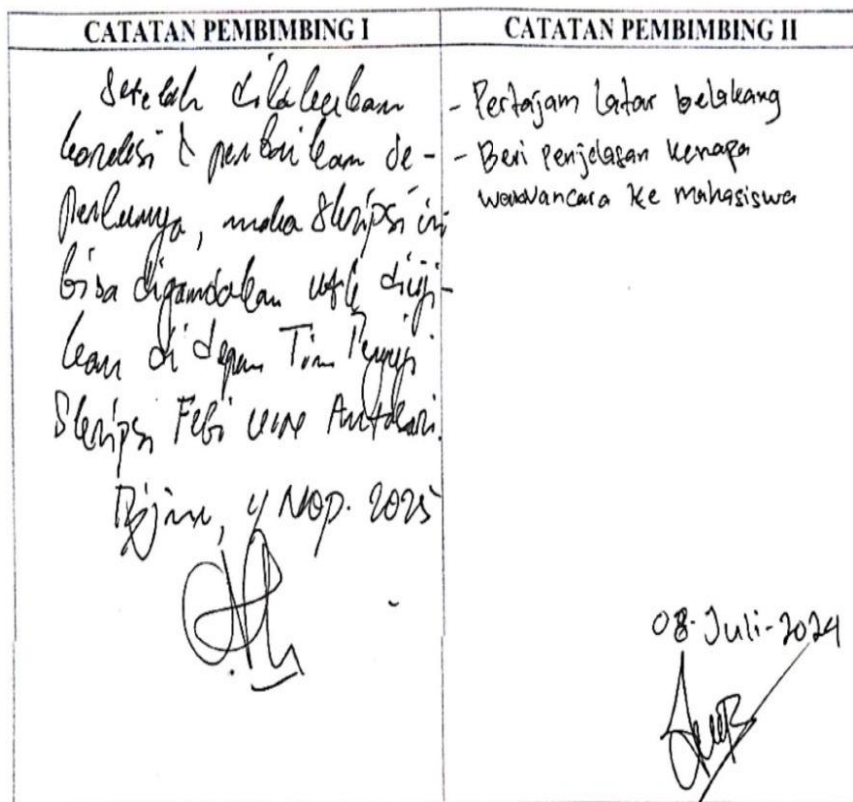 CATATAN PEMBIMBING I
Setelah dilakukan
koreksi & perbaikan se-
perlunya, maka Skripsi ini
bisa digandakan utk diuji-
kan di depan Tim Penguji
Skripsi Febi UIN Antasari.
Bjm, 4 Nop. 2025
CATATAN PEMBIMBING II
- Pertajam latar belakang
- Beri penjelasan kenapa
wawancara ke mahasiswa
08-Juli-2024